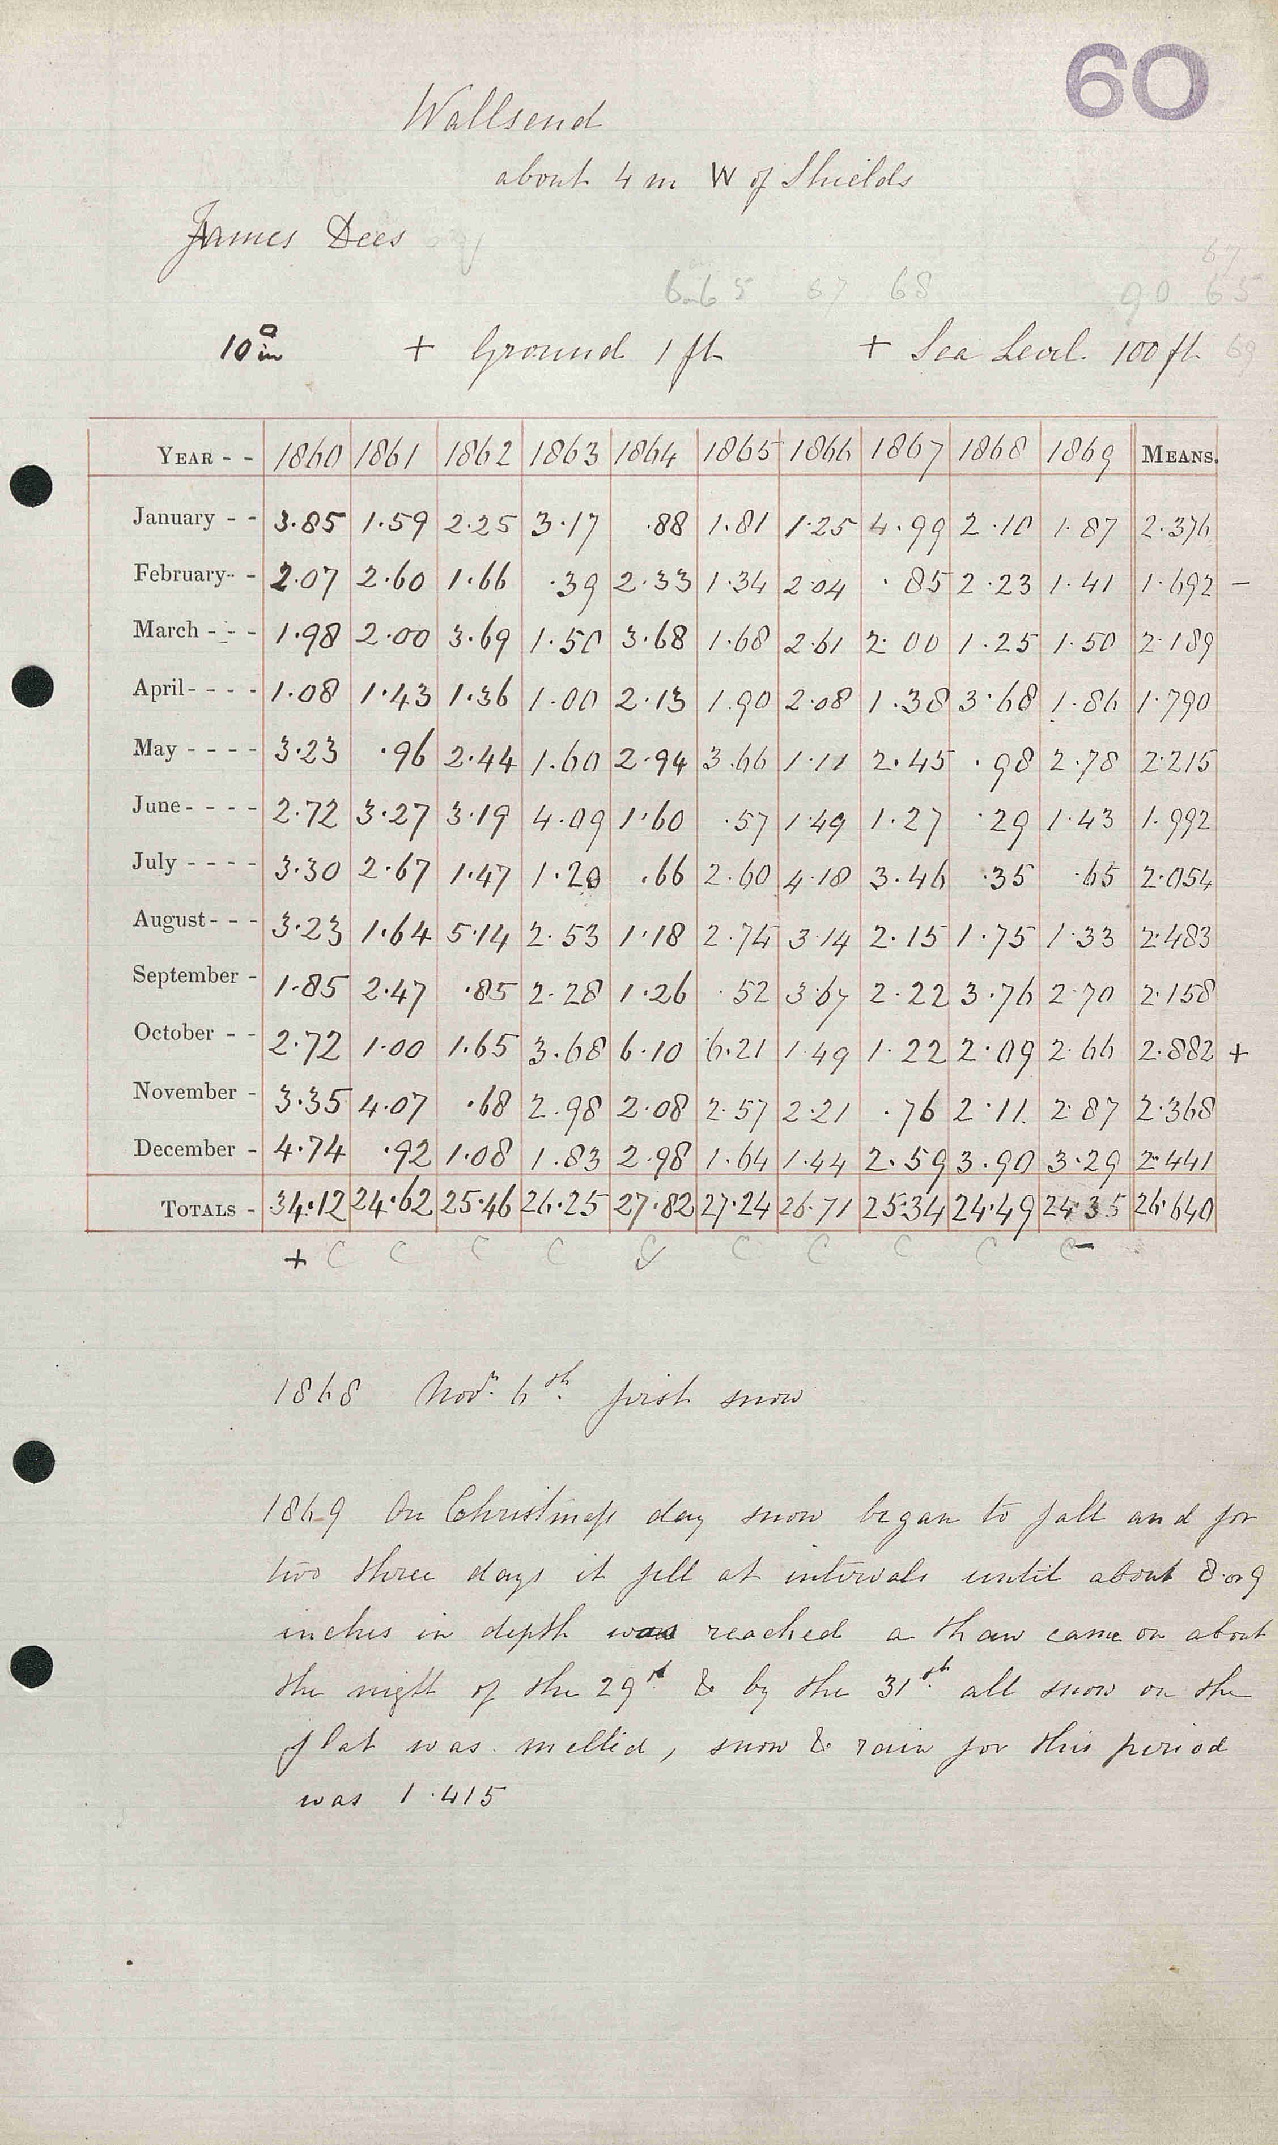 60
Wallsend
about 4 m W of Shields
James Dees
67
65 67 68 90 65
10 in + Ground 1 ft + Sea Level. 100 ft 69
YEAR - - 1860 1861 1862 1863 1864 1865 1866 1867 1868 1869 MEANS.
January - - 3.85 1.59 2.25 3.17 .88 1.81 1.25 4.99 2.10 1.87 2.376
February - - 2.07 2.60 1.66 .39 2.33 1.34 2.04 .85 2.23 1.41 1.692 -
March - - - 1.98 2.00 3.69 1.50 3.68 1.68 2.61 2.00 1.25 1.50 2.189
April - - - - 1.08 1.43 1.36 1.00 2.13 1.90 2.08 1.38 3.68 1.86 1.790
May - - - - 3.23 .96 2.44 1.60 2.94 3.66 1.11 2.45 .98 2.78 2.215
June - - - - 2.72 3.27 3.19 4.09 1.60 .57 1.49 1.27 .29 1.43 1.992
July - - - - 3.30 2.67 1.47 1.20 .66 2.60 4.18 3.46 .35 .65 2.054
August - - - 3.23 1.64 5.14 2.53 1.18 2.74 3.14 2.15 1.75 1.33 2.483
September - 1.85 2.47 .85 2.28 1.26 .52 3.67 2.22 3.76 2.70 2.158
October - - 2.72 1.00 1.65 3.68 6.10 6.21 1.49 1.22 2.09 2.66 2.882 +
November - 3.35 4.07 .68 2.98 2.08 2.57 2.21 .76 2.11 2.87 2.368
December - 4.74 .92 1.08 1.83 2.98 1.64 1.44 2.59 3.90 3.29 2.441
TOTALS - 34.12 24.62 25.46 26.25 27.82 27.24 26.71 25.34 24.49 24.35 26.640
+ C C C C C C C C C C -
1868 Novr. 6th. first snow
1869 On Christmass day snow began to fall and for
two three days it fell at intervals until about 8 or 9
inches in depth was reached a thaw came on about
the night of the 29th & by the 31st. all snow on the
flat was melted, snow & rain for this period
was 1.415